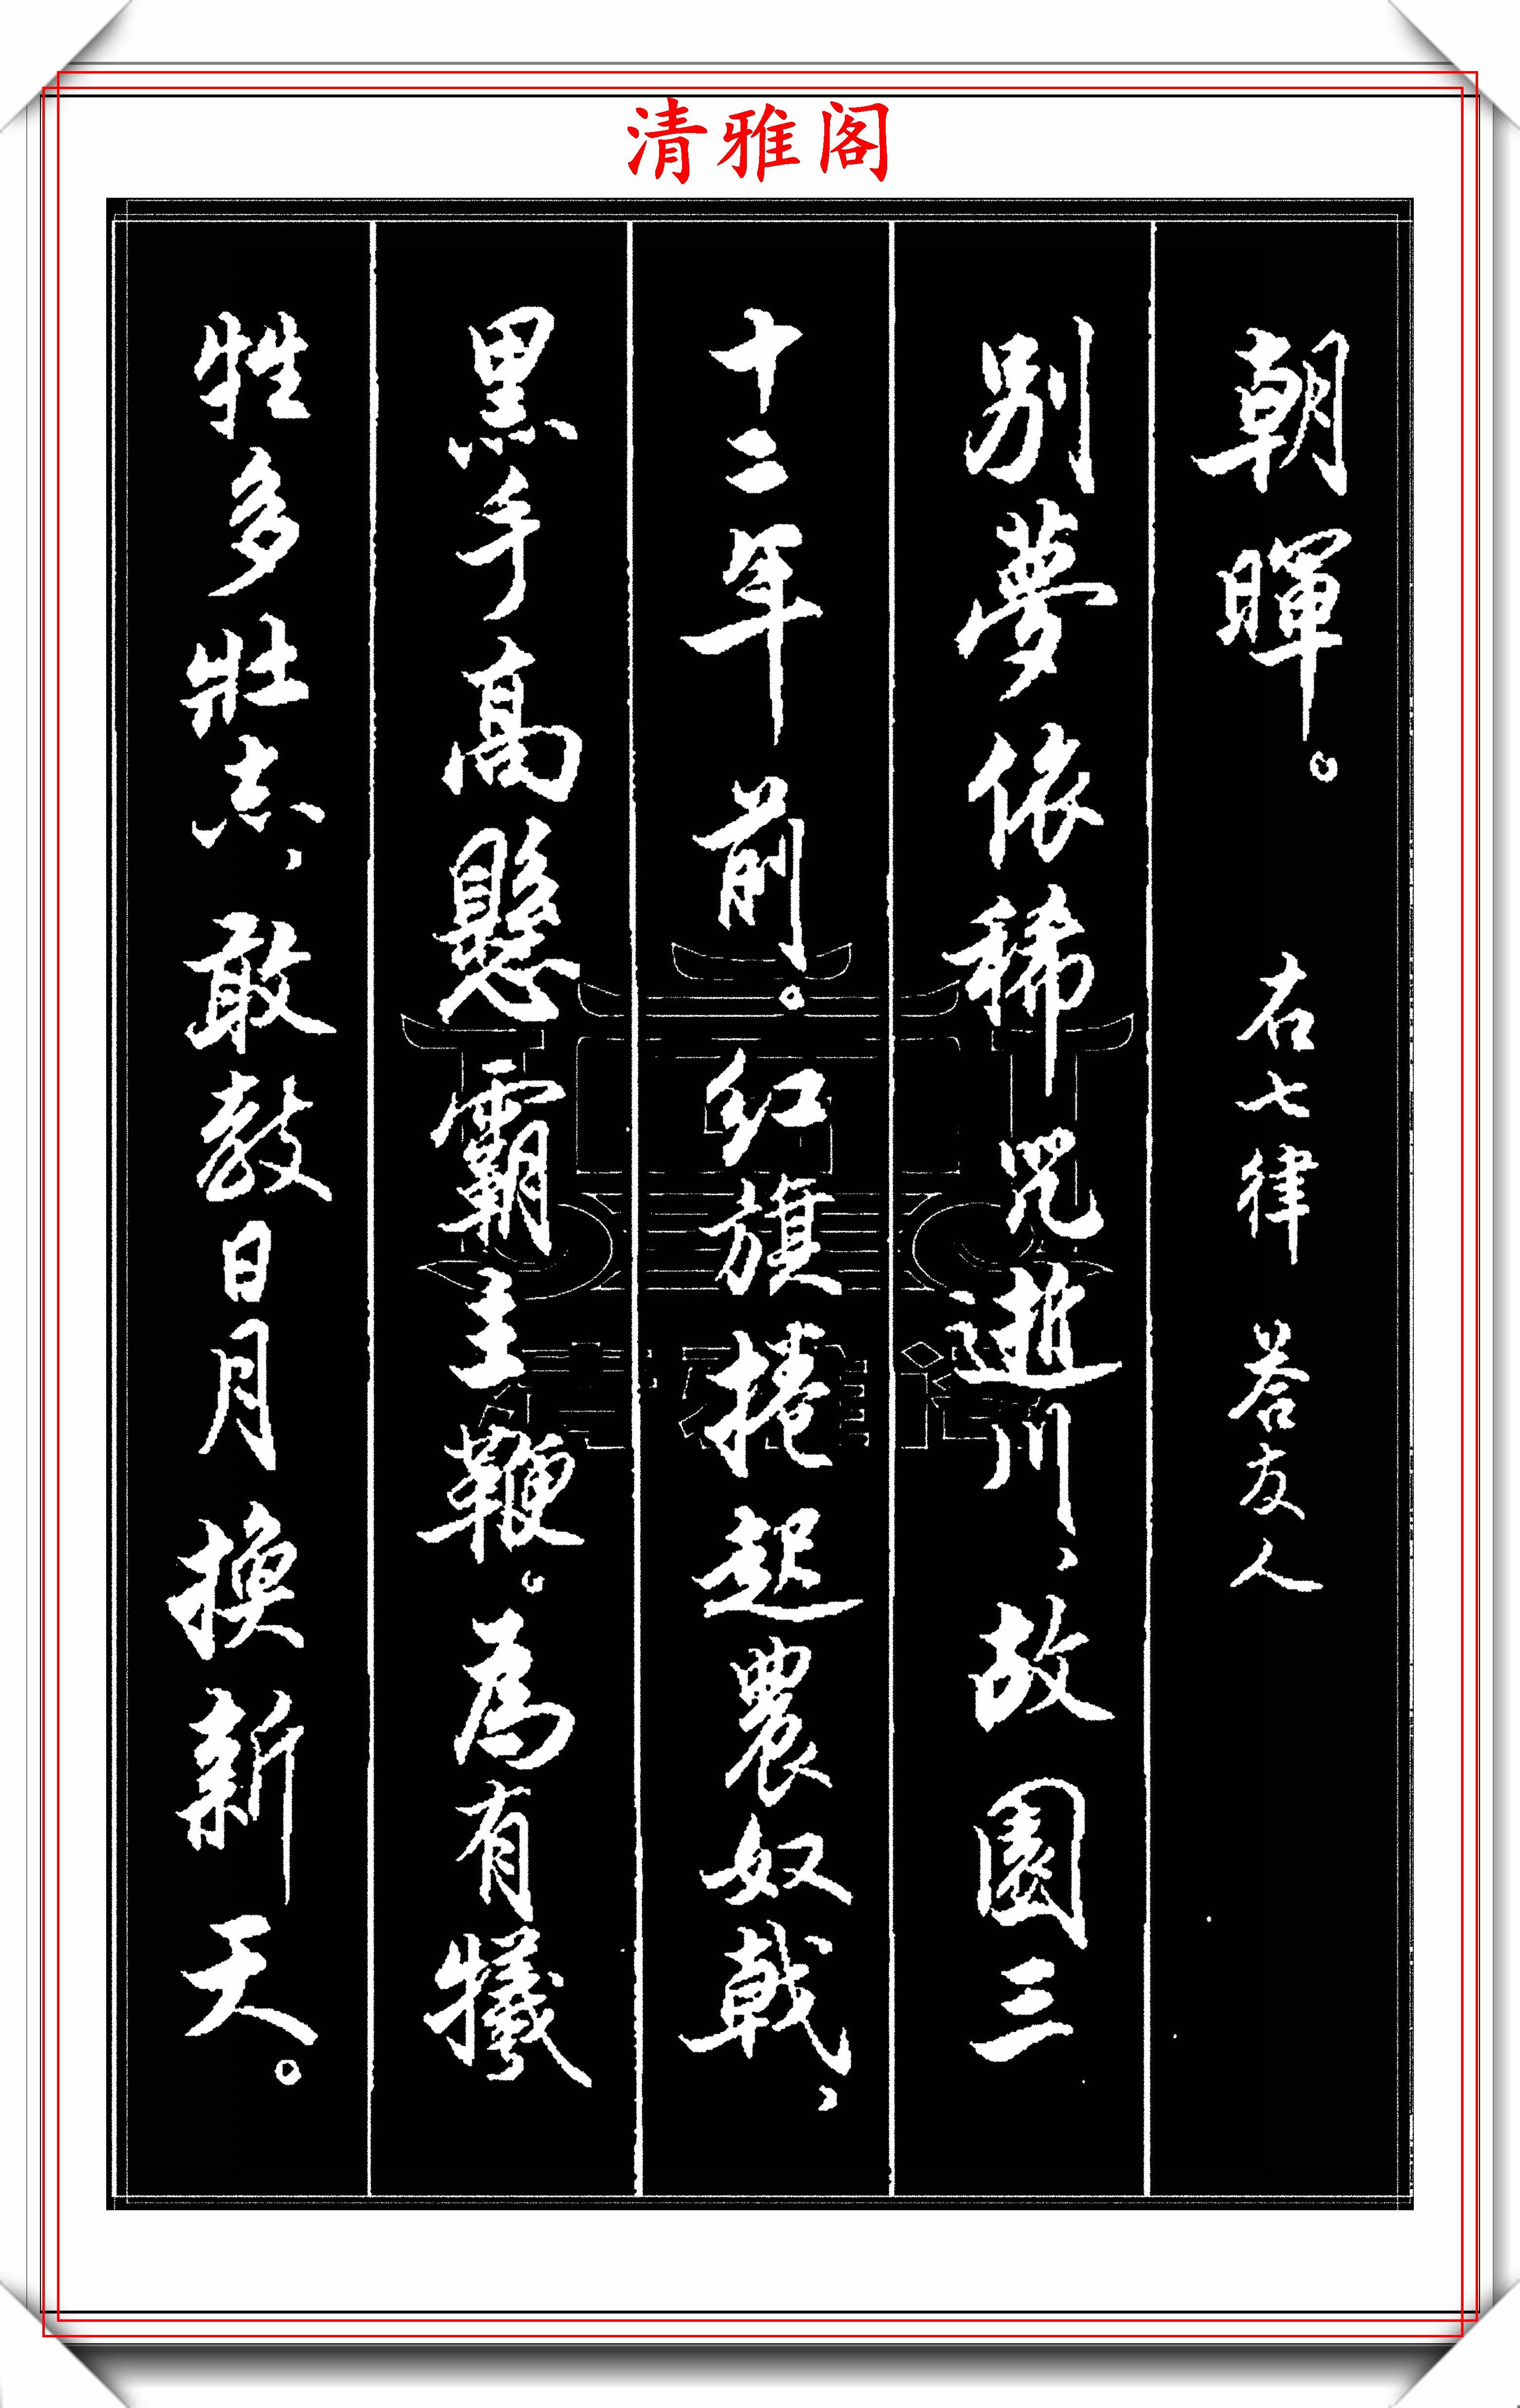 清雅阁
朝暉。 右七律 答友人
别夢依稀咒逝川、故園三
十二年前。红旗捲起農奴戟、
黑手高懸霸主鞭。為有犧
牲多壮志、敢教日月换新天。